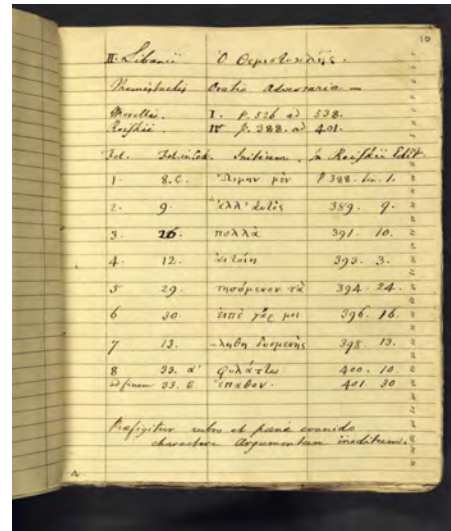 10
II. Libanii Ὁ Θεμιστοκλῆς.
Themistoclis Oratio Adversaria —
Morellii. I. p. 526 ad 538.
Reiskii IV p. 388. ad 401.
Fol. Fol. in Cod. Initium. In Reiskii Edit.
1. 8. μὲν P 388. lin. 1.
2. 9. ἀλλ' αὐτὸς 389. 9.
3. 26. πολλὰ 391. 10.
4. 12. 393. 3.
5 29. τὰ 394. 24.
6 30. εἰπὲ γάρ μοι 396. 16.
7 13. -λήθη δυσμενὴς 398. 13.
8 33. α' φυλάττω 400. 10.
ad finem 33. ἔπαθον. 401. 30
Praefigitur rubro et paene evanido
charactere Argumentum ineditum.